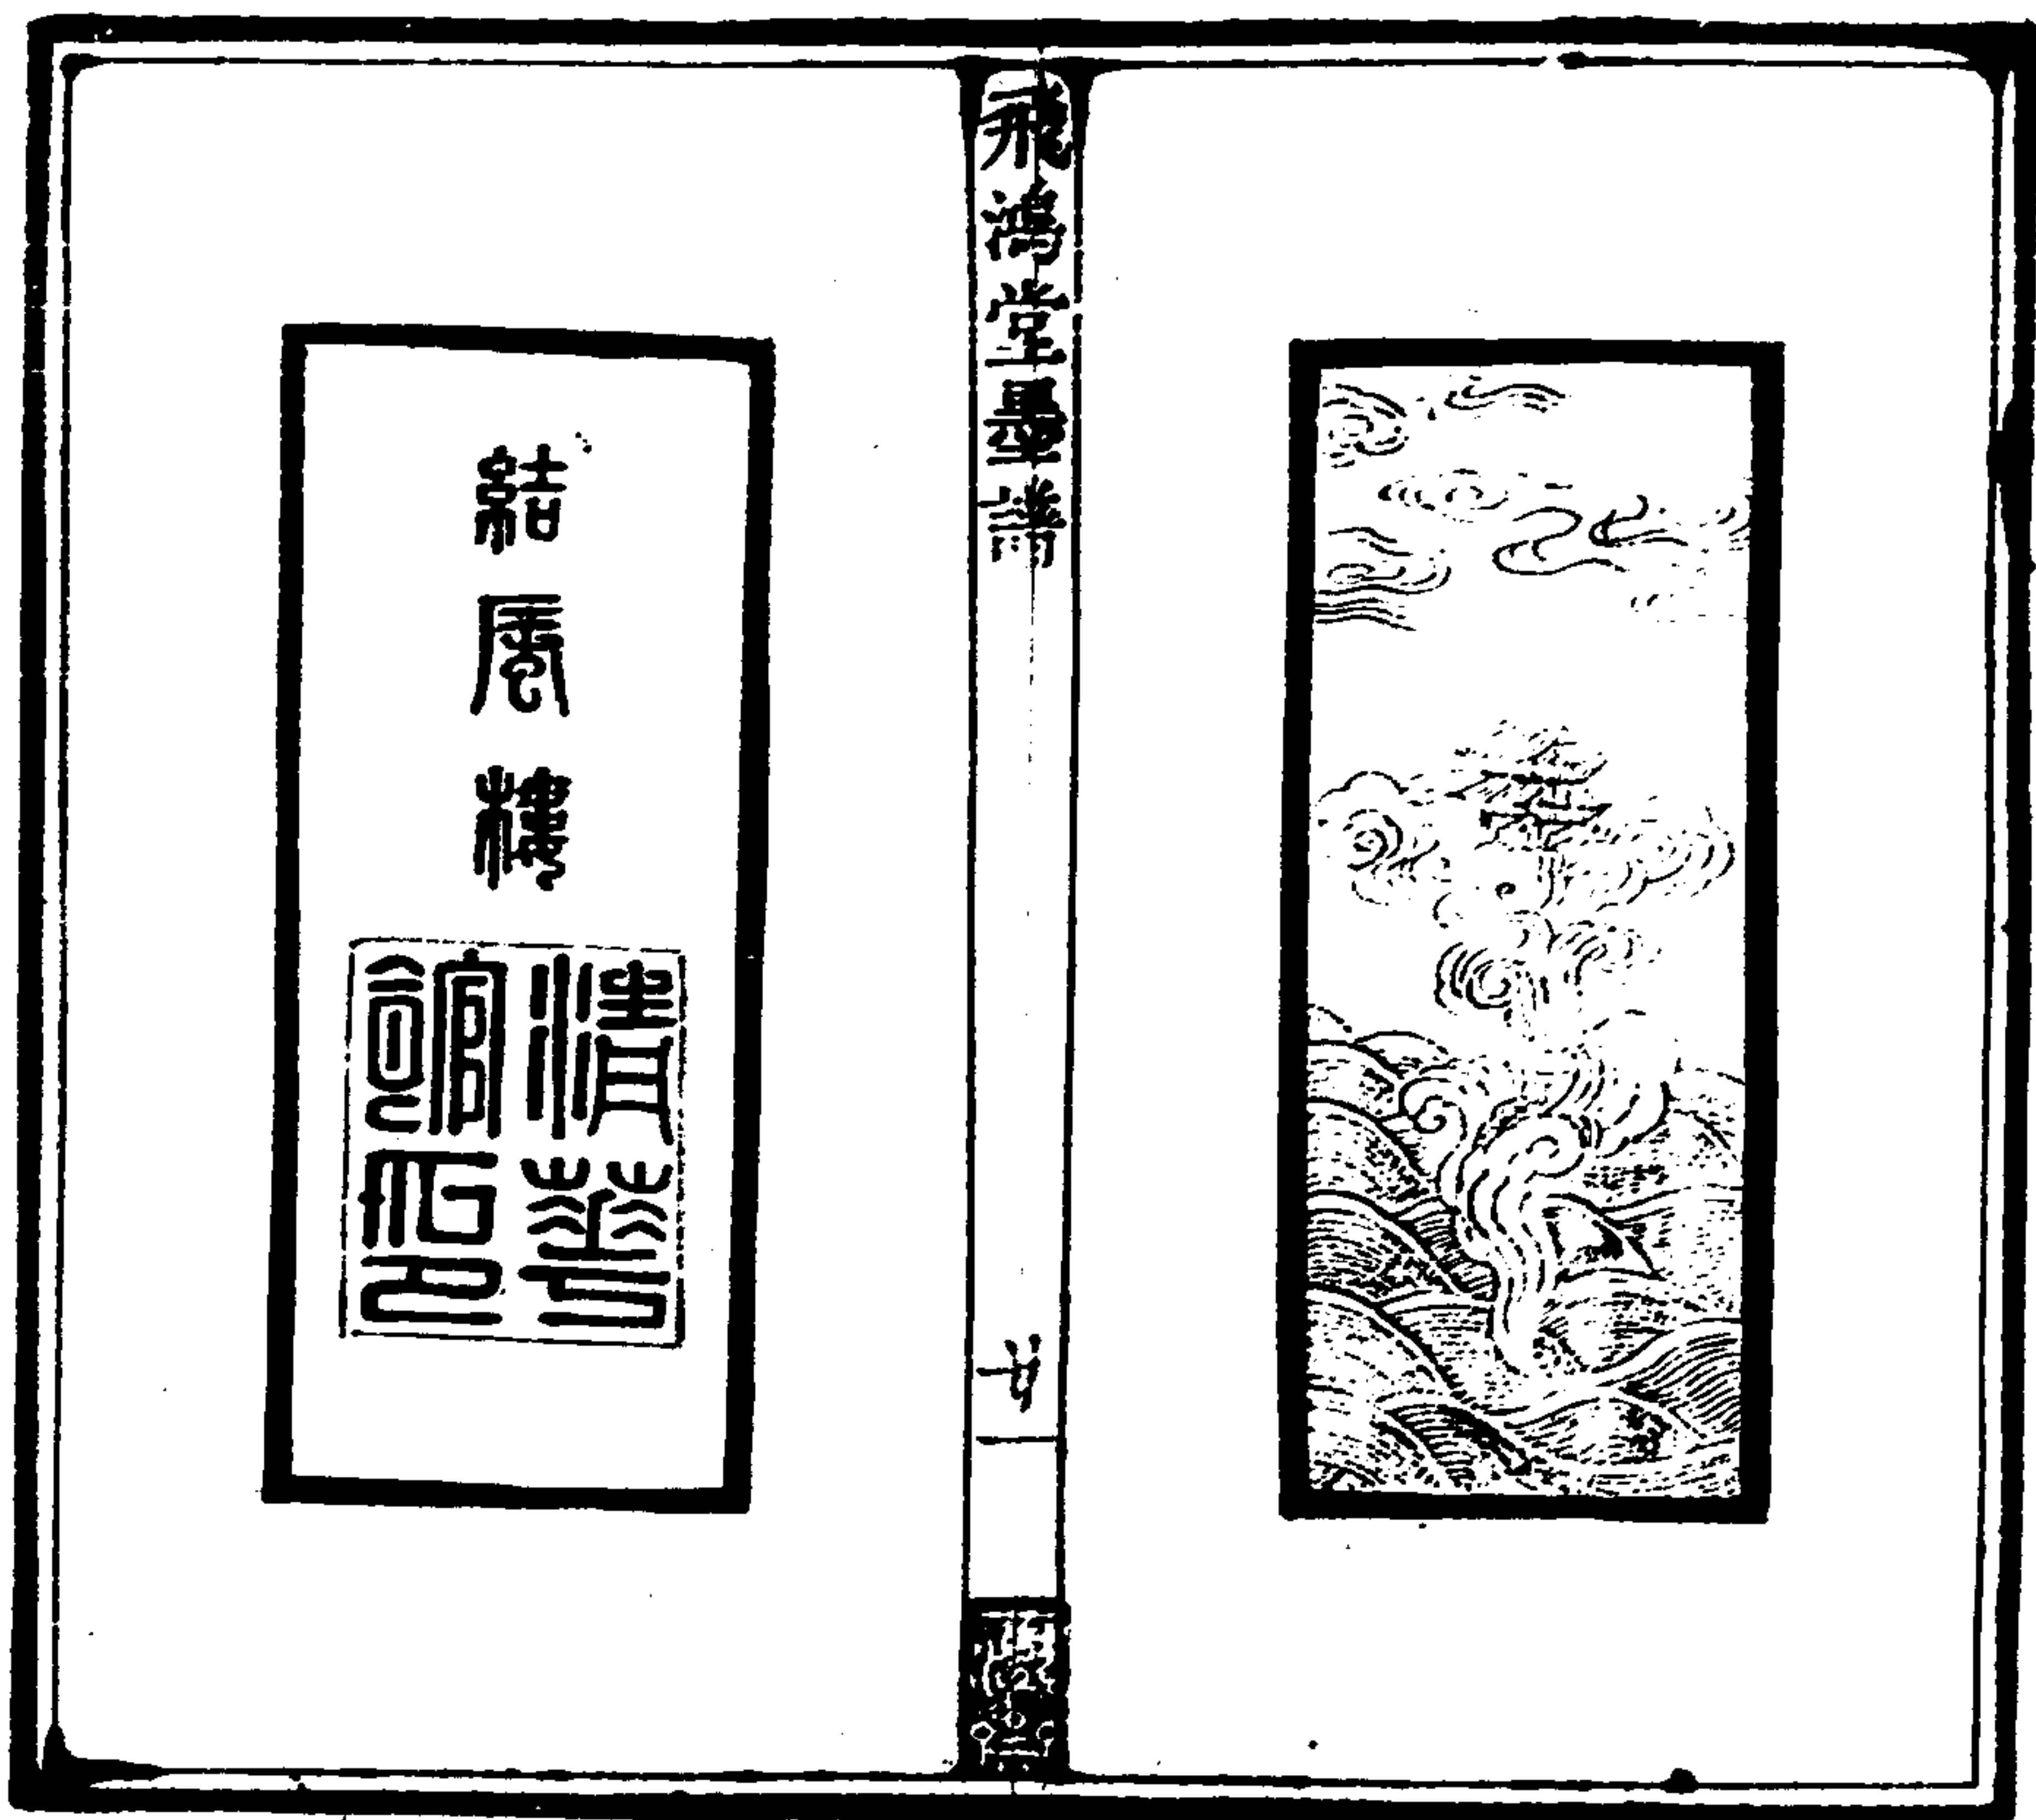 飛鴻堂墨譜
廿一
結蜃樓
清華
館印